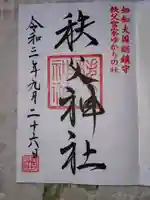 知知夫国総鎮守
秩父宮家ゆかりの社
秩父神社
令和三年九月二十六日